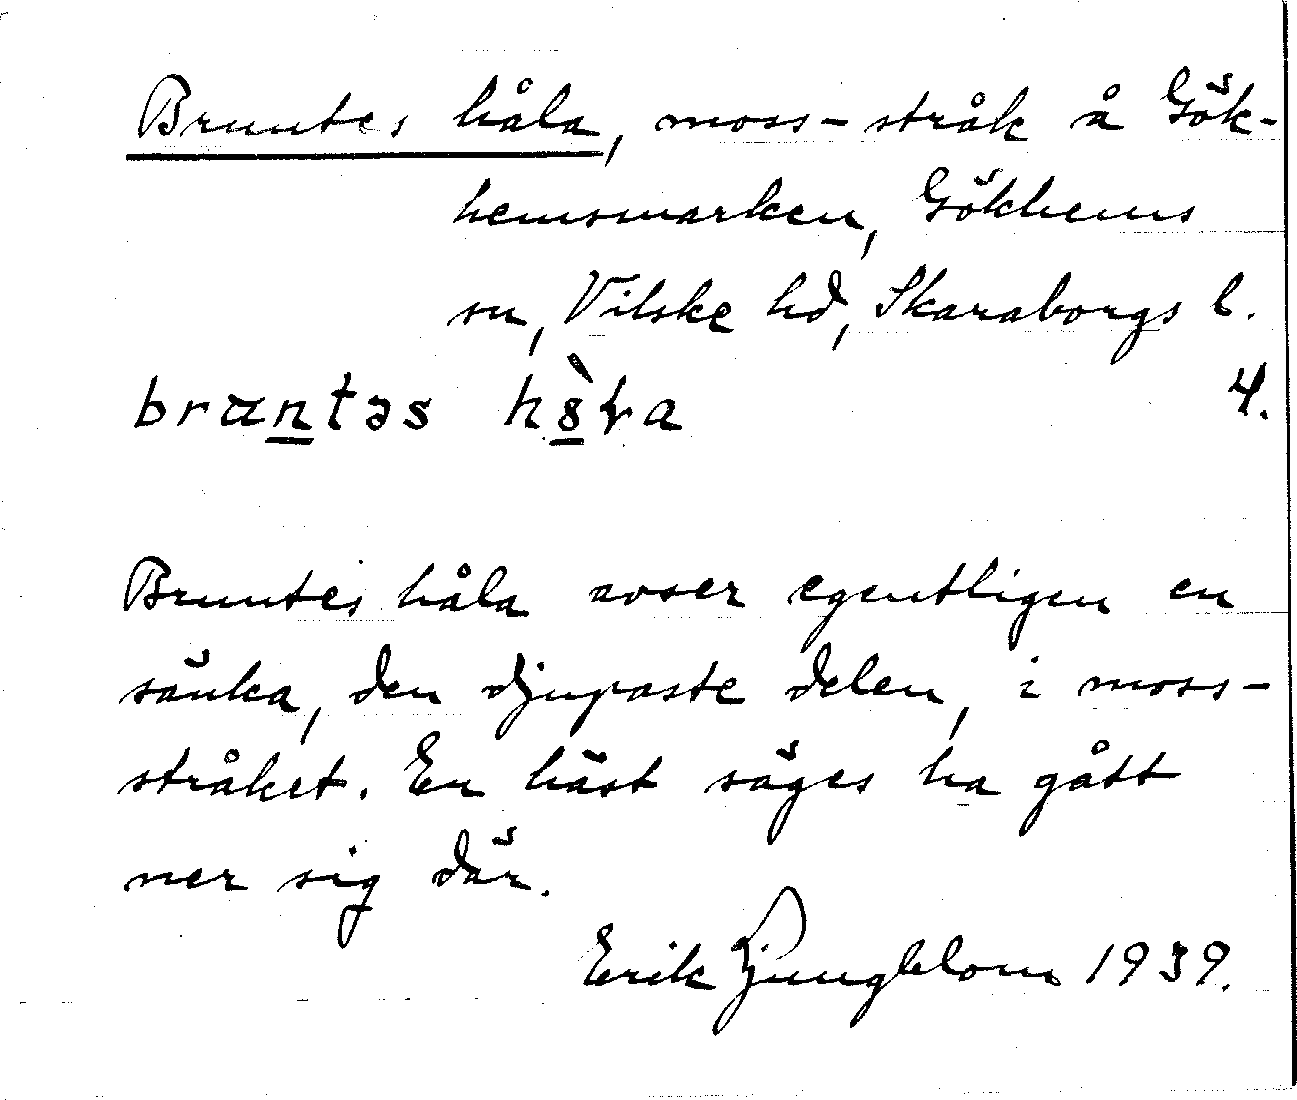 Bruntes håla, moss-stråk å Gök-
hemsmarken, Gökhems
sn, Vilske hd, Skaraborgs l.
brant̲əs 4.
Bruntes håla avser egentligen en
sänka, den djupaste delen, i moss-
stråket. En häst säges ha gått
ner sig där.
Erik Ljungblom 1939.